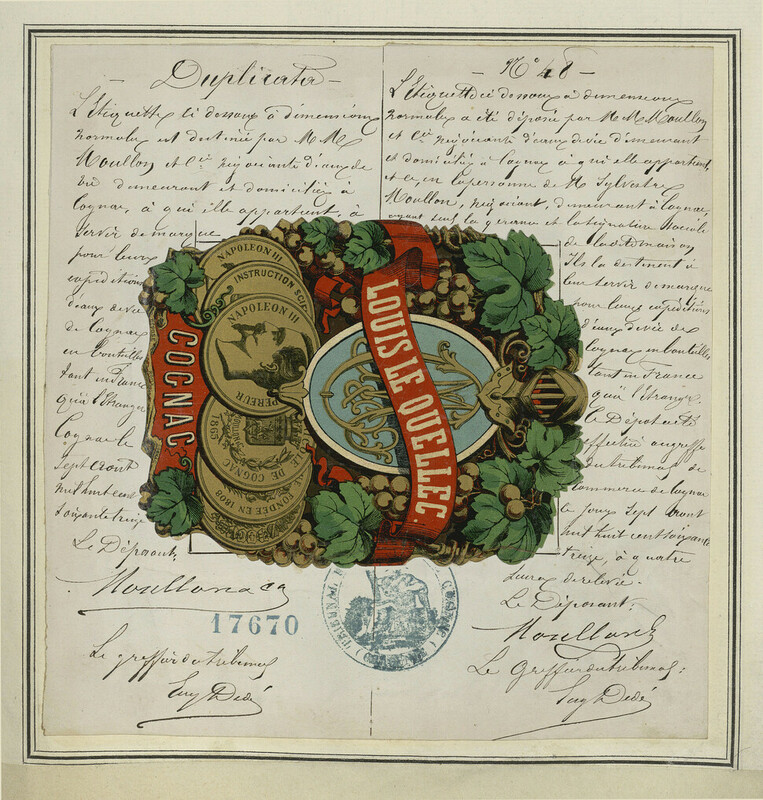 Duplicata
L'Etiquette ci dessous à dimensions
normales est destinée par M. M.
Moullon et Cie négociants d'eaux de
vie demeurant et domiciliés à
Cognac, à qui elle appartient, à
servir de marque
pour leurs
expéditions
d'eaux de vie
de Cognac
en bouteilles
tant en France
qu'à l'Etranger
Cognac le
sept août
mil huit cent
soixante treize
Le Déposant,
Moullon & Co
17670
Le greffier du tribunal
N° 48
L'Etiquette ci dessous à dimensions
normales a été déposée par M. M. Moullon
et Cie négociants d'eaux de vie demeurant
et domiciliés à Cognac à qui elle appartient,
et ce, en la personne de M. Sylvestre
Moullon, négociant, demeurant à Cognac,
ayant seul la gérance et la signature sociale
de la dite maison
Ils la destinent à
leur servir de marque
pour leurs expéditions
d'eaux de vie de
Cognac en bouteilles
tant en France
qu'à l'Etranger
Le Dépôt a été
effectué au greffe
du tribunal de
commerce de Cognac
le jour sept août
mil huit cent soixante
treize, à quatre
heures de relevée.
Le Déposant:
Le Greffier du tribunal:
COGNAC
NAPOLEON III
INSTRUCTION
NAPOLEON III
EMPEREUR
VILLE DE COGNAC
1865
FONDÉE EN 1808
LOUIS LE QUELLEC.